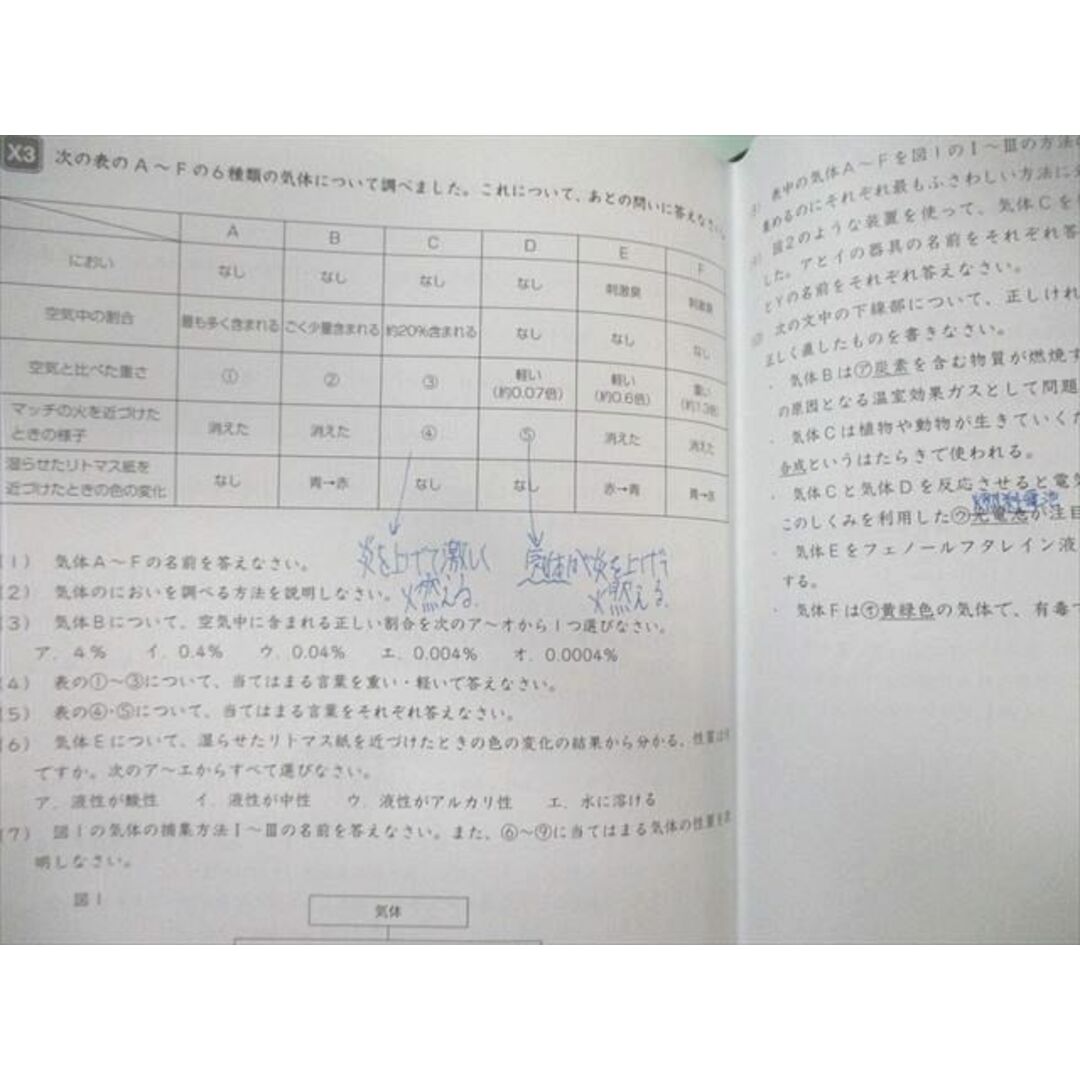 X3 次の表のA～Fの6種類の気体について調べました。これについて、あとの問いに答えなさい。
A B C D E F
におい なし なし なし なし 刺激臭 刺激臭
空気中の割合 最も多く含まれる ごく少量含まれる 約20%含まれる なし なし なし
空気と比べた重さ ① ② ③ 軽い (約0.07倍) 軽い (約0.6倍) 重い (約1.3倍)
マッチの火を近づけた
ときの様子 消えた 消えた ④ ⑤ 消えた 消えた
湿らせたリトマス紙を
近づけたときの色の変化 なし 青→赤 なし なし 赤→青 青→赤
炎を上げて激しく
燃える。
気体が炎を上げて
燃える
(1) 気体A～Fの名前を答えなさい。
(2) 気体のにおいを調べる方法を説明しなさい。
(3) 気体Bについて、空気中に含まれる正しい割合を次のア～オから1つ選びなさい。
ア. 4% イ. 0.4% ウ. 0.04% エ. 0.004% オ. 0.0004%
(4) 表の①～③について、当てはまる言葉を重い・軽いで答えなさい。
(5) 表の④・⑤について、当てはまる言葉をそれぞれ答えなさい。
(6) 気体Eについて、湿らせたリトマス紙を近づけたときの色の変化の結果から分かる、性質は何
ですか。次のア～エからすべて選びなさい。
ア. 液性が酸性 イ. 液性が中性 ウ. 液性がアルカリ性 エ. 水に溶ける
(7) 図1の気体の捕集方法Ⅰ～Ⅲの名前を答えなさい。また、⑥～⑨に当てはまる気体の性質を説
明しなさい。
図1
気体
表中の気体A～Fを図1のⅠ～Ⅲの方法
集めるのにそれぞれ最もふさわしい方法に
図2のような装置を使って、気体Cを
した。アとイの器具の名前をそれぞれ答
とYの名前をそれぞれ答えなさい。
次の文中の下線部について、正しけれ
正しく直したものを書きなさい。
・ 気体Bは㋐炭素を含む物質が燃焼す
の原因となる温室効果ガスとして問題
・ 気体Cは植物や動物が生きていくた
合成というはたらきで使われる。
・ 気体Cと気体Dを反応させると電気
燃料電池
このしくみを利用した㋒光電池が注目
・ 気体Eをフェノールフタレイン液
する。
・ 気体Fは㋔黄緑色の気体で、有毒で